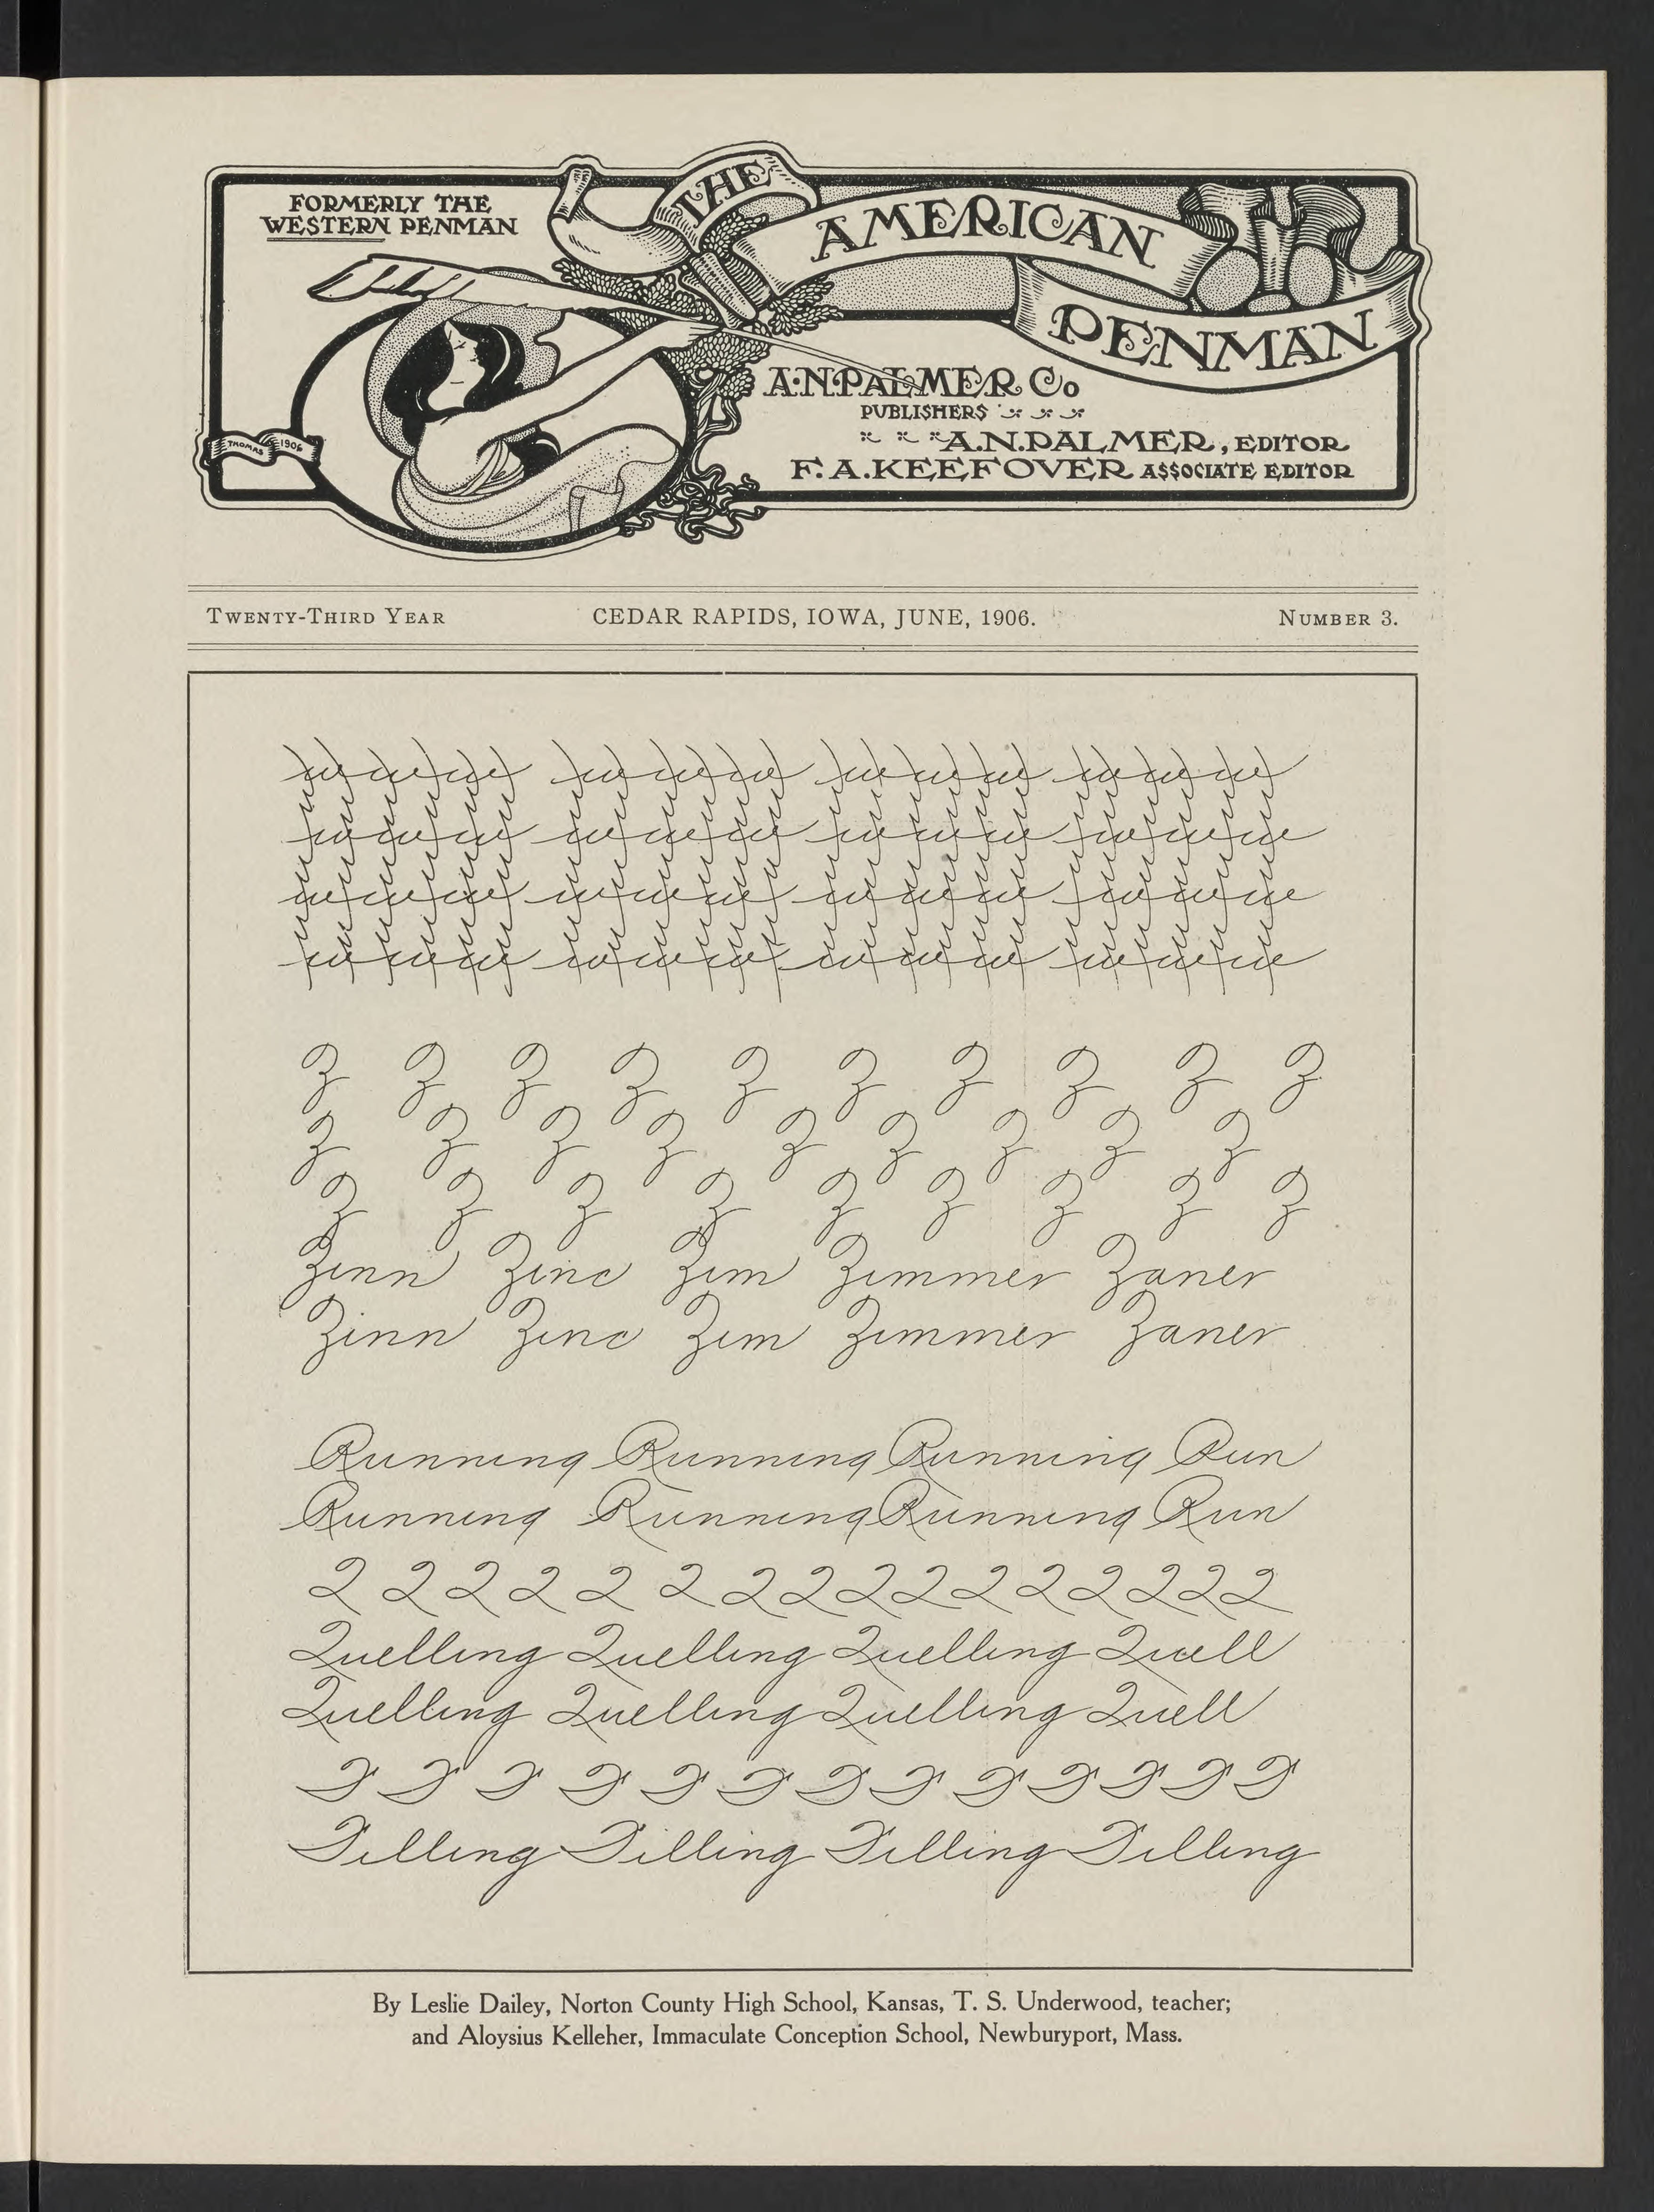 FORMERLY THE
WESTERN PENMAN
THE
AMERICAN
PENMAN
A.N.PALMER Co
PUBLISHERS
A.N.PALMER, EDITOR
F. A. KEEFOVER ASSOCIATE EDITOR
THOMAS 1906
TWENTY-THIRD YEAR CEDAR RAPIDS, IOWA, JUNE, 1906. NUMBER 3.
Z Z Z Z Z Z Z Z Z Z
Z Z Z Z Z Z Z Z Z
Z Z Z Z Z Z Z Z Z
Zinn Zinc Zim Zimmer Zaner
Zinn Zinc Zim Zimmer Zaner
Running Running Running Run
Running Running Running Run
Q Q Q Q Q Q Q Q Q Q Q Q Q Q Q Q
Quelling Quelling Quelling Quell
Quelling Quelling Quelling Quell
T T T T T T T T T T T T T
Tilling Tilling Tilling Tilling
By Leslie Dailey, Norton County High School, Kansas, T. S. Underwood, teacher;
and Aloysius Kelleher, Immaculate Conception School, Newburyport, Mass.